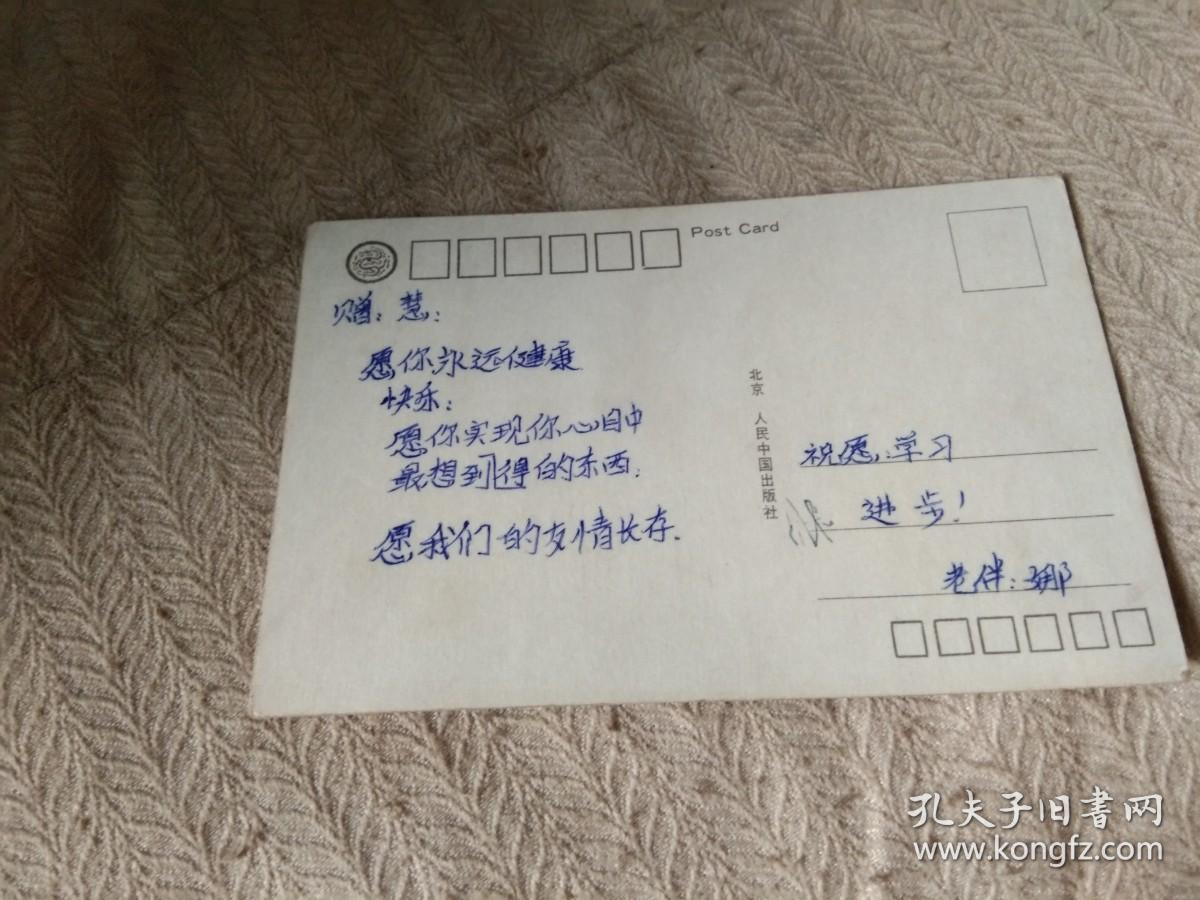 Post Card
赠：慧：
愿你永远健康
快乐：
愿你实现你心目中
最想到得的东西．
愿我们的友情长存．
北京 人民中国出版社
祝愿：学习
进步！
老伴：娜
孔夫子旧書网
www.kongfz.com